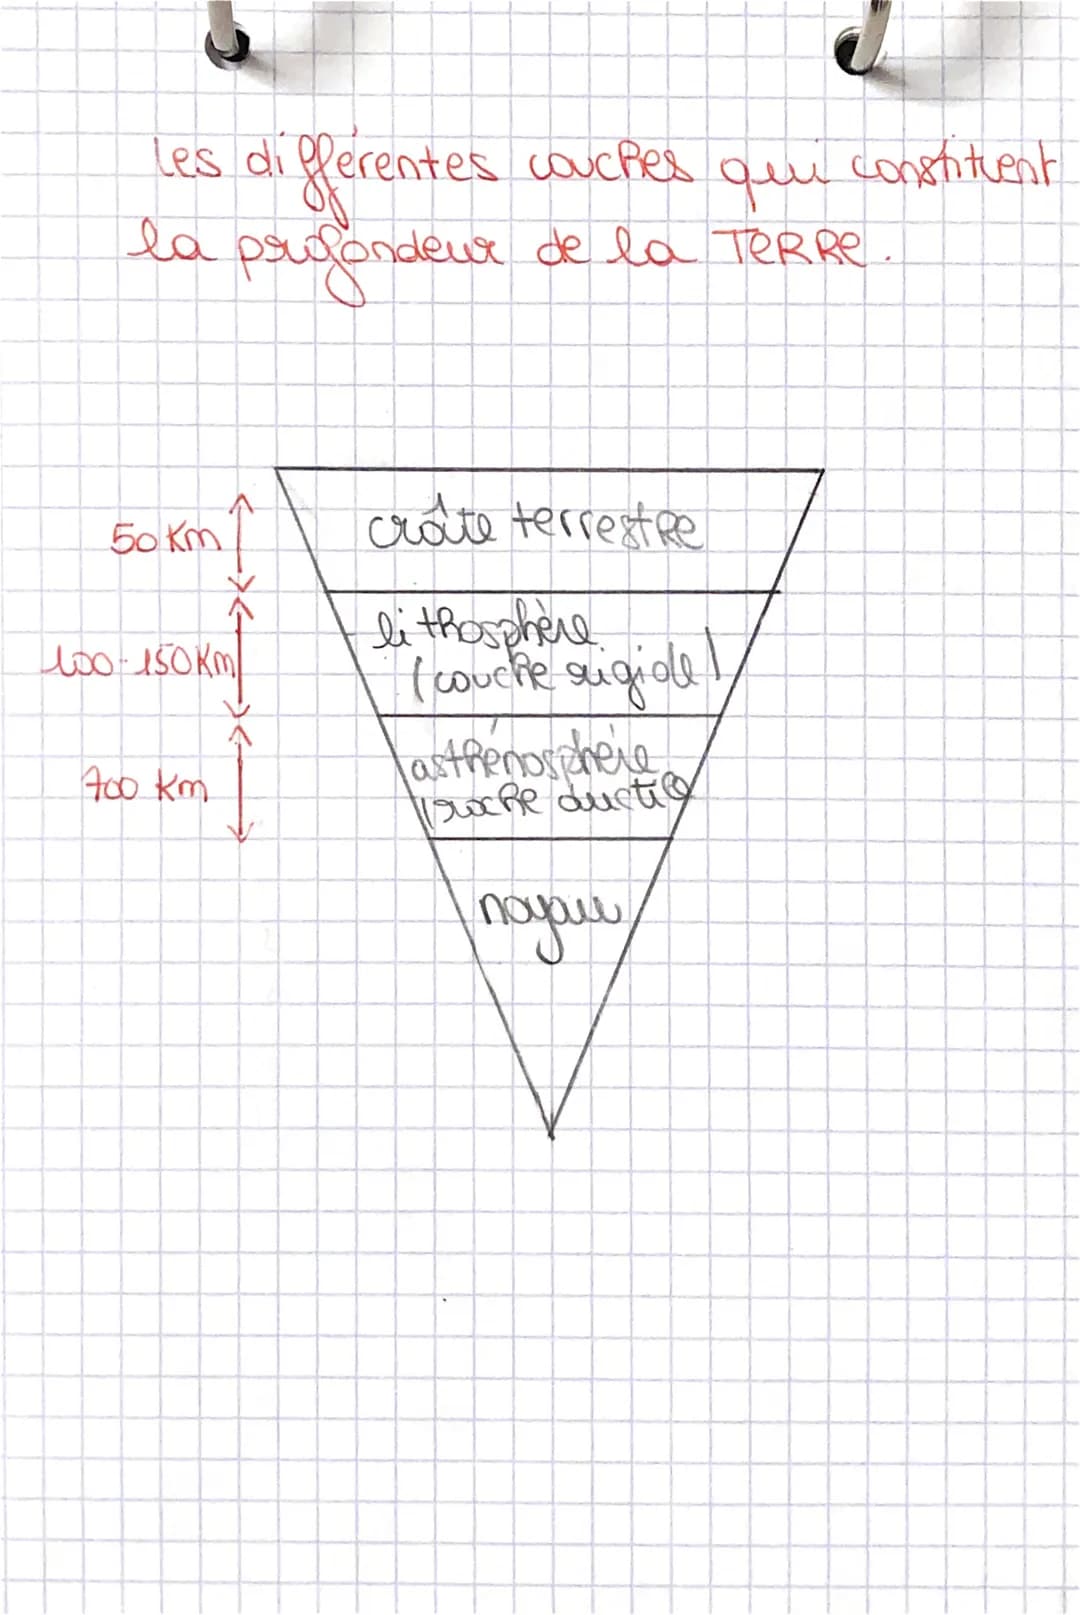 les différentes couches qui constituent
la profondeur de la TERRE.
croûte terrestre
50 Km
lithosphère
(couche rigide)
100-150 Km
asthénosphère
(roche ductile)
700 Km
noyau